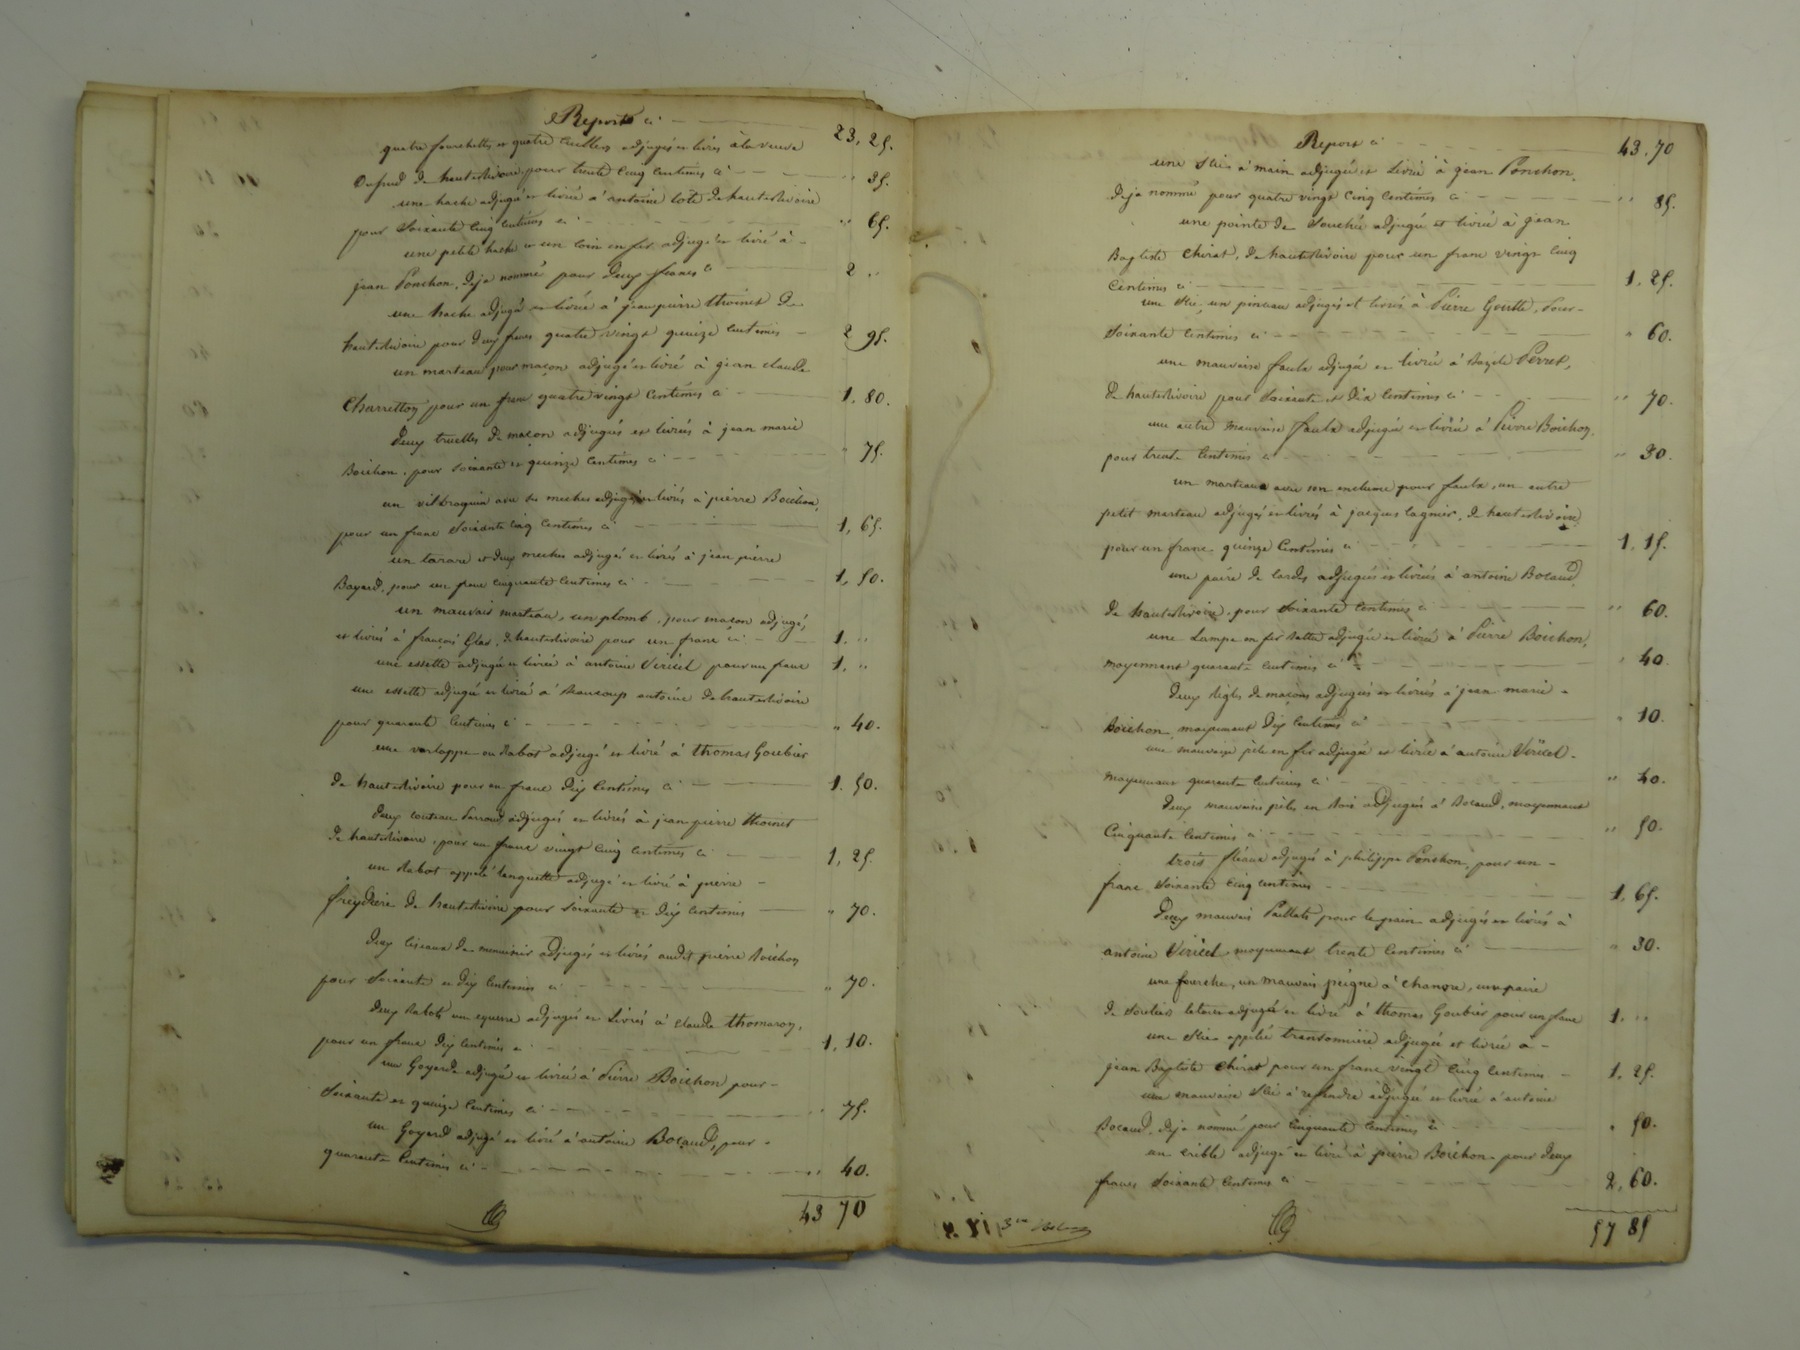 Report ci 23, 25.
quatre fourchettes et quatre cuillers adjugés et livrés à la veuve
de hauterivoire, pour trente cinq centimes ci " 35.
une hache adjugé et livrée à antoine de hauterivoire
pour Soixante cinq centimes ci " 65.
une petite hache et un coin en fer adjugé et livré à
jean Ponchon, deja nommé pour deux francs ci 2 "
une hache adjugé et livrée à jean pierre thoinet de
hauterivoire pour deux francs quatre vingt quinze centimes 2 95.
un marteau pour maçon adjugé et livré à jean claude
Charretton pour un franc quatre vingt centimes ci 1, 80.
deux truelles de maçon adjugés et livrés à jean marie
Boichon, pour soixante et quinze centimes ci " 75.
un vilbroquin avec ses meches adjugé et livrés à pierre Boichon,
pour un franc soixante cinq centimes ci 1, 65.
un tarare et deux meches adjugés et livrés à jean pierre
Bayard, pour un franc cinquante centimes ci 1, 50.
un mauvais marteau, un plomb, pour maçon adjugé,
et livrés à françois Glas, de hauterivoire pour un franc ci 1. "
une essette adjugé et livrée à antoine Véricel pour un franc 1, "
un essette adjugé et livré à antoine de hauterivoire
pour quarante centimes ci " 40.
une varlappe ou Rabot adjugé et livré à thomas Goubier
de hauterivoire pour un franc dix centimes ci 1. 50.
deux couteau Parroud adjugés et livrés à jean pierre thoinet
de hauterivoire, pour un franc vingt cinq centimes ci 1, 25.
un Rabot appelé languette adjugé et livré à pierre
freydière de hauterivoire pour soixante et dix centimes " 70.
deux ciseaux de menuisier adjugés et livrés audit pierre Boichon
pour soixante et dix centimes ci " 70.
deux Rabots une equerre adjugés et livrés à claude thomaron,
pour un franc dix centimes ci 1, 10.
une Goyarde adjugée et livrée à Pierre Boichon pour
soixante et quinze centimes ci " 75.
un Goyard adjugé et livré à antoine Bocaud, pour
quarante centimes ci " 40.
43 70
Report ci 43. 70
une Scie à main adjugée et Livrée à jean Ponchon,
deja nommé pour quatre vingt cinq centimes ci " 85.
une pointe de adjugée et livrée à jean
Baptiste Chirat, de hauterivoire pour un franc vingt cinq
centimes ci 1. 25.
une Scie, un pinceau adjugés et livrés à Pierre Goutte, Pour
soixante centimes ci " 60.
une mauvaise faulx adjugée et livrée à Perret,
de hauterivoire pour soixante et dix centimes ci " 70.
une autre mauvaise faulx adjugée et livrée à Pierre Boichon,
pour trente centimes ci " 30.
un marteau avec son enclume pour faulx, un autre
petit marteau adjugés et livrés à jacques lagnier, de hauterivoire
pour un franc quinze centimes ci 1, 15.
une paire de cardes adjugées et livrées à antoine Bocaud,
de hauterivoire, pour soixante centimes ci " 60.
une Lampe en fer adjugée et livrée à Pierre Boichon,
moyennant quarante centimes ci " 40.
deux Règles de maçons adjugées et livrées à jean marie
Boichon, moyennant dix centimes ci " 10.
une mauvaise pèle en fer adjugée et livrée à antoine Véricel
moyennant quarante centimes ci " 40.
deux mauvaises pèles en bois adjugées à Bocaud, moyennant
Cinquante centimes ci " 50.
trois fléaux adjugés à philippe Ponchon, pour un
franc soixante cinq centimes 1, 65.
deux mauvais Paillats pour le pain adjugés et livrés à
antoine Véricel moyennant trente centimes ci " 30.
une fourche, un mauvais peigne à chanvre, une paire
de souliers adjugés et livré à thomas Goubier pour un franc 1. "
une Scie appelée transonnière adjugée et livrée à
jean Baptiste Chirat pour un franc vingt cinq centimes 1, 25.
une mauvaise Scie à refendre adjugée et livrée à antoine
Bocaud, deja nommé pour cinquante centimes ci " 50.
un crible adjugé et livré à pierre Boichon pour deux
francs soixante centimes ci 2, 60.
57 85